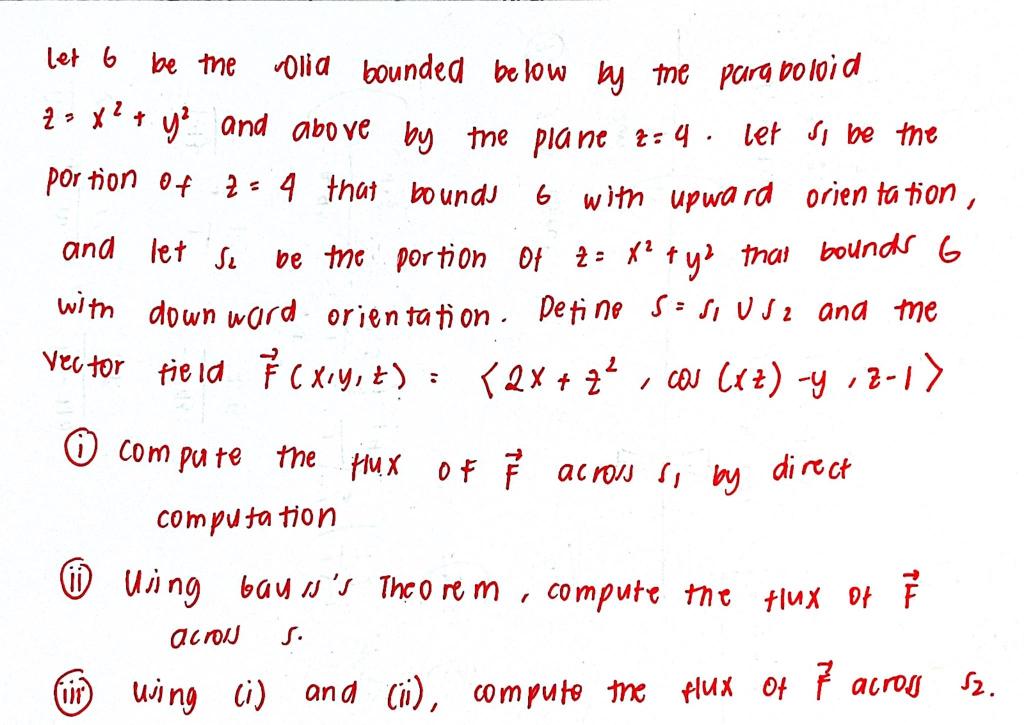 Let G be the solid bounded below by the paraboloid
z = x² + y² and above by the plane z = 4. Let S₁ be the
portion of z = 4 that bounds G with upward orientation,
and let S₂ be the portion of z = x² + y² that bounds G
with downward orientation. Define S = S₁ ∪ S₂ and the
vector field F⃗(x,y,z) = ⟨2x + z², cos(xz) - y, z-1⟩
(i) compute the flux of F⃗ across S₁ by direct
computation
(ii) Using Gauss's Theorem, compute the flux of F⃗
across S.
(iii) using (i) and (ii), compute the flux of F⃗ across S₂.